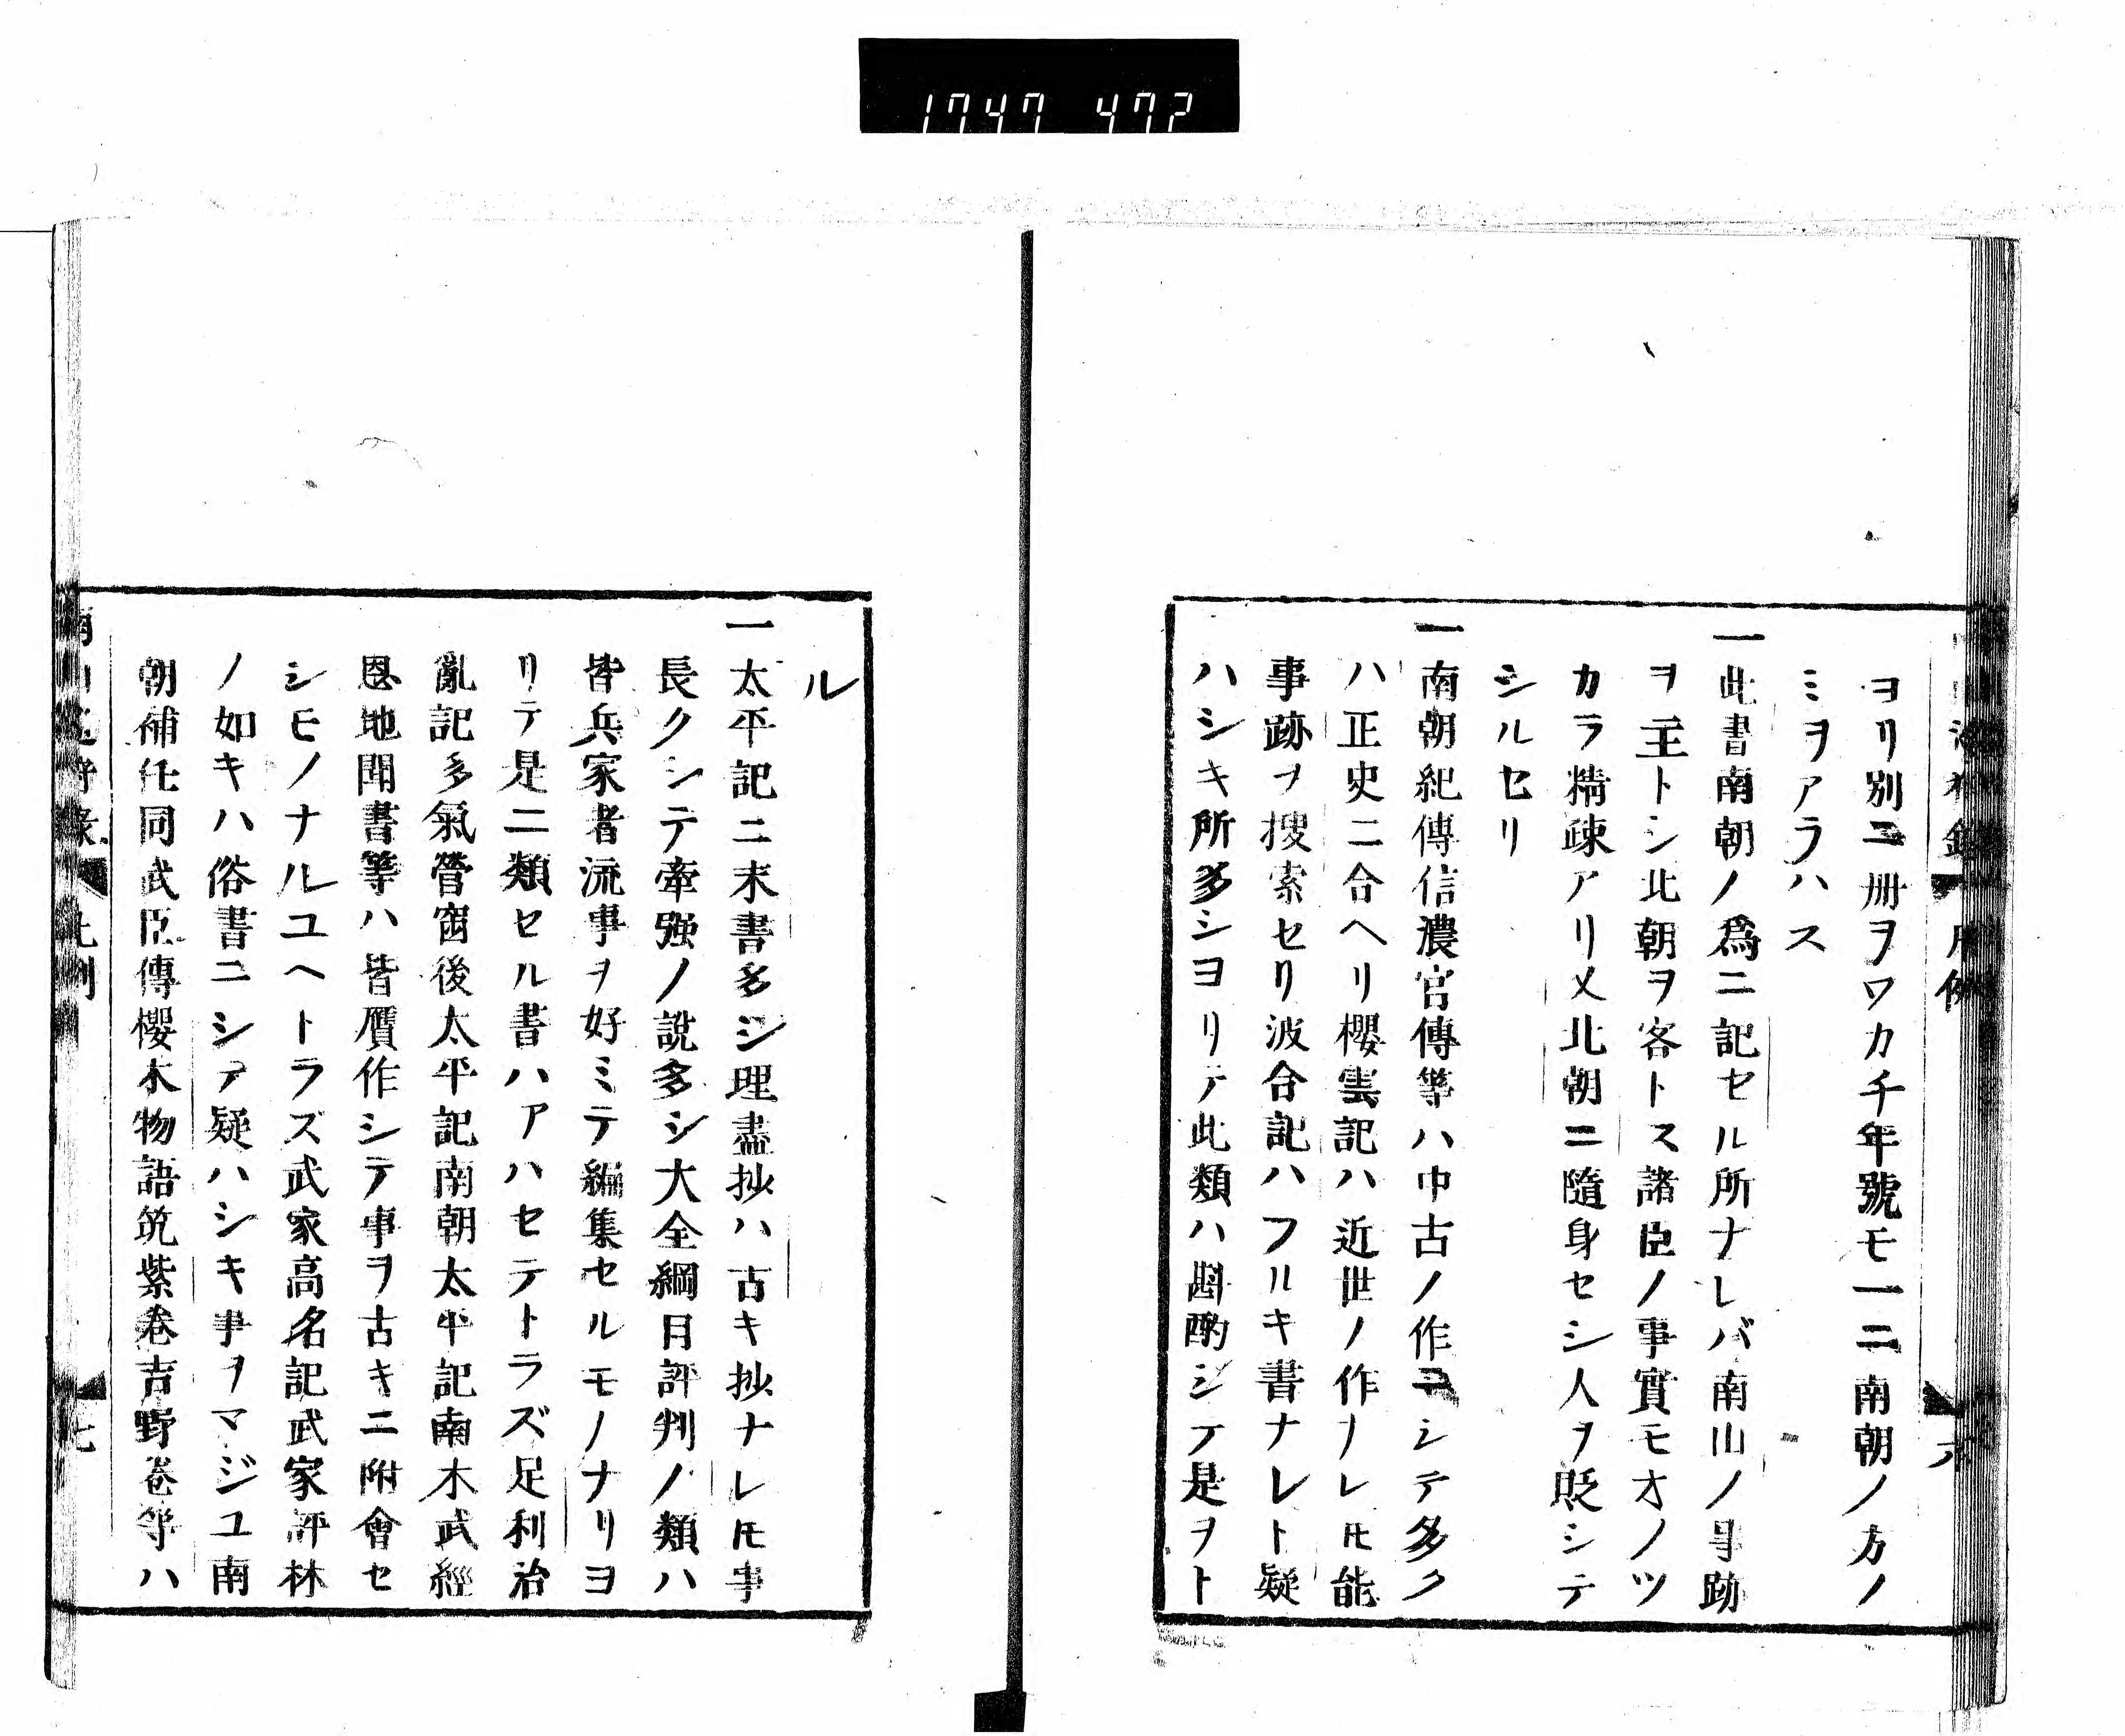 1747 472
ヨリ別ニ冊ヲワカチ年號モ一二南朝ノ方ノ
ミヲアラハス
一此書南朝ノ爲ニ記セル所ナレバ南山ノ事跡
ヲ主トシ北朝ヲ客トス諸臣ノ事實モオノツ
カラ精疎アリ又北朝ニ隨身セシ人ヲ貶シテ
シルセリ
一南朝紀傳信濃官傳等ハ中古ノ作ニシテ多ク
ハ正史ニ合ヘリ櫻雲記ハ近世ノ作ナレ𪜈能
事跡ヲ捜索セリ波合記ハフルキ書ナレト疑
ハシキ所多シヨリテ此類ハ斟酌シテ是ヲト
ル
一太平記ニ末書多シ理盡抄ハ古キ抄ナレ𪜈事
長クシテ牽强ノ說多シ大全綱目評判ノ類ハ
皆兵家者流事ヲ好ミテ編集セルモノナリヨ
リテ是ニ類セル書ハアハセテトラズ足利治
亂記多氣營窗後太平記南朝太平記南木武經
恩地聞書等ハ皆贋作シテ事ヲ古キニ附會セ
シモノナルユヘトラズ武家高名記武家評林
ノ如キハ俗書ニシテ疑ハシキ事ヲマジユ南
朝補任同武臣傳櫻木物語筑紫卷吉野卷等ハ
七